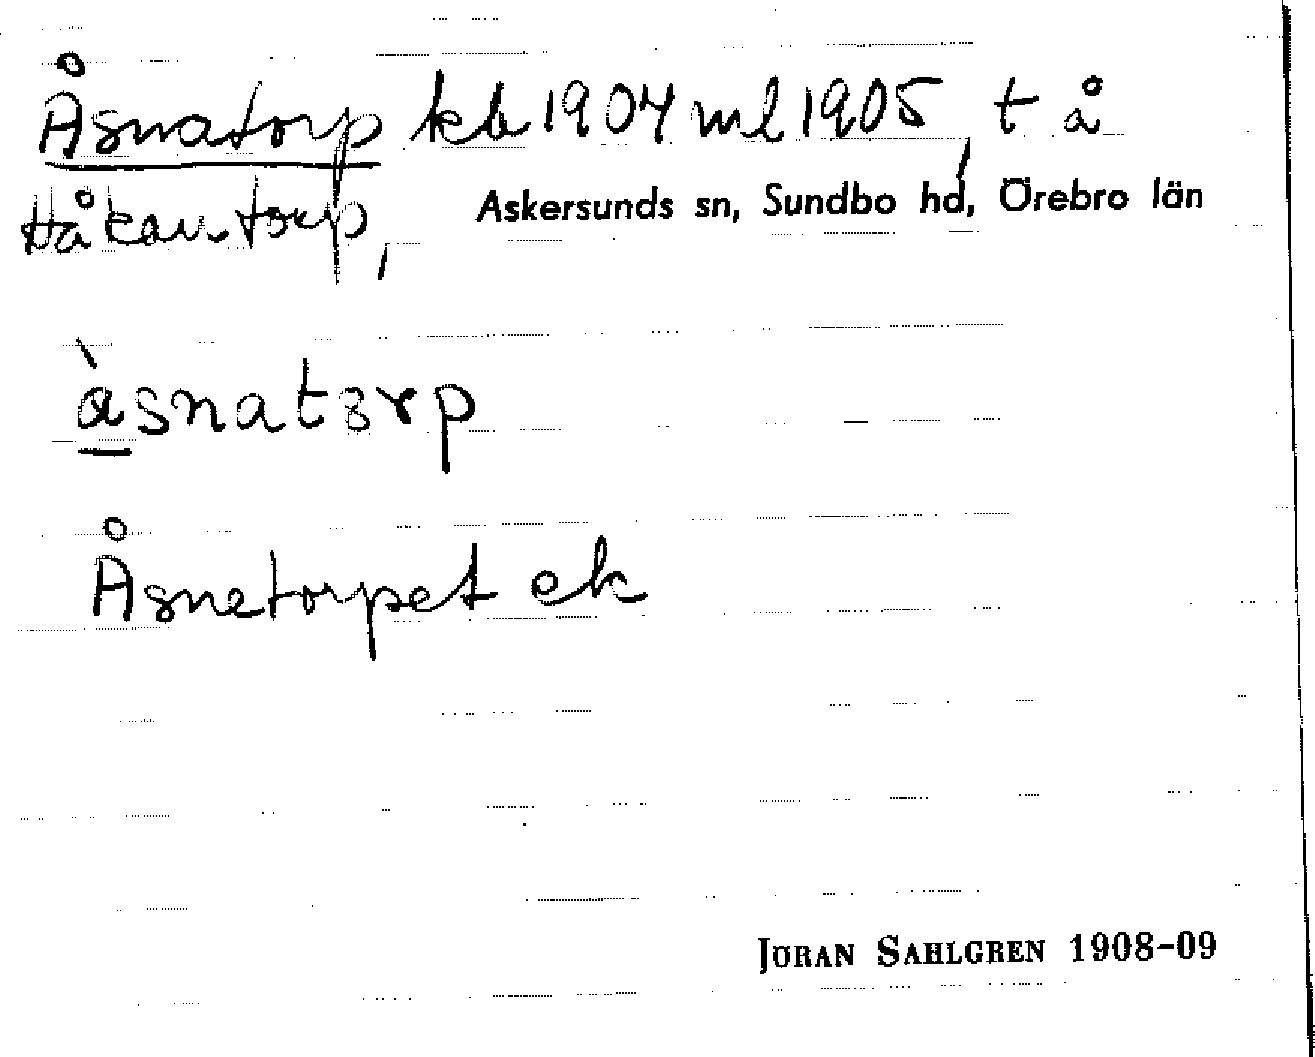 Åsnatorp kb 1904 ml 1905, t å
Håkantorp, Askersunds sn, Sundbo hd, Örebro län
àsnatɜrp
Åsnetorpet ek
JÖRAN SAHLGREN 1908-09